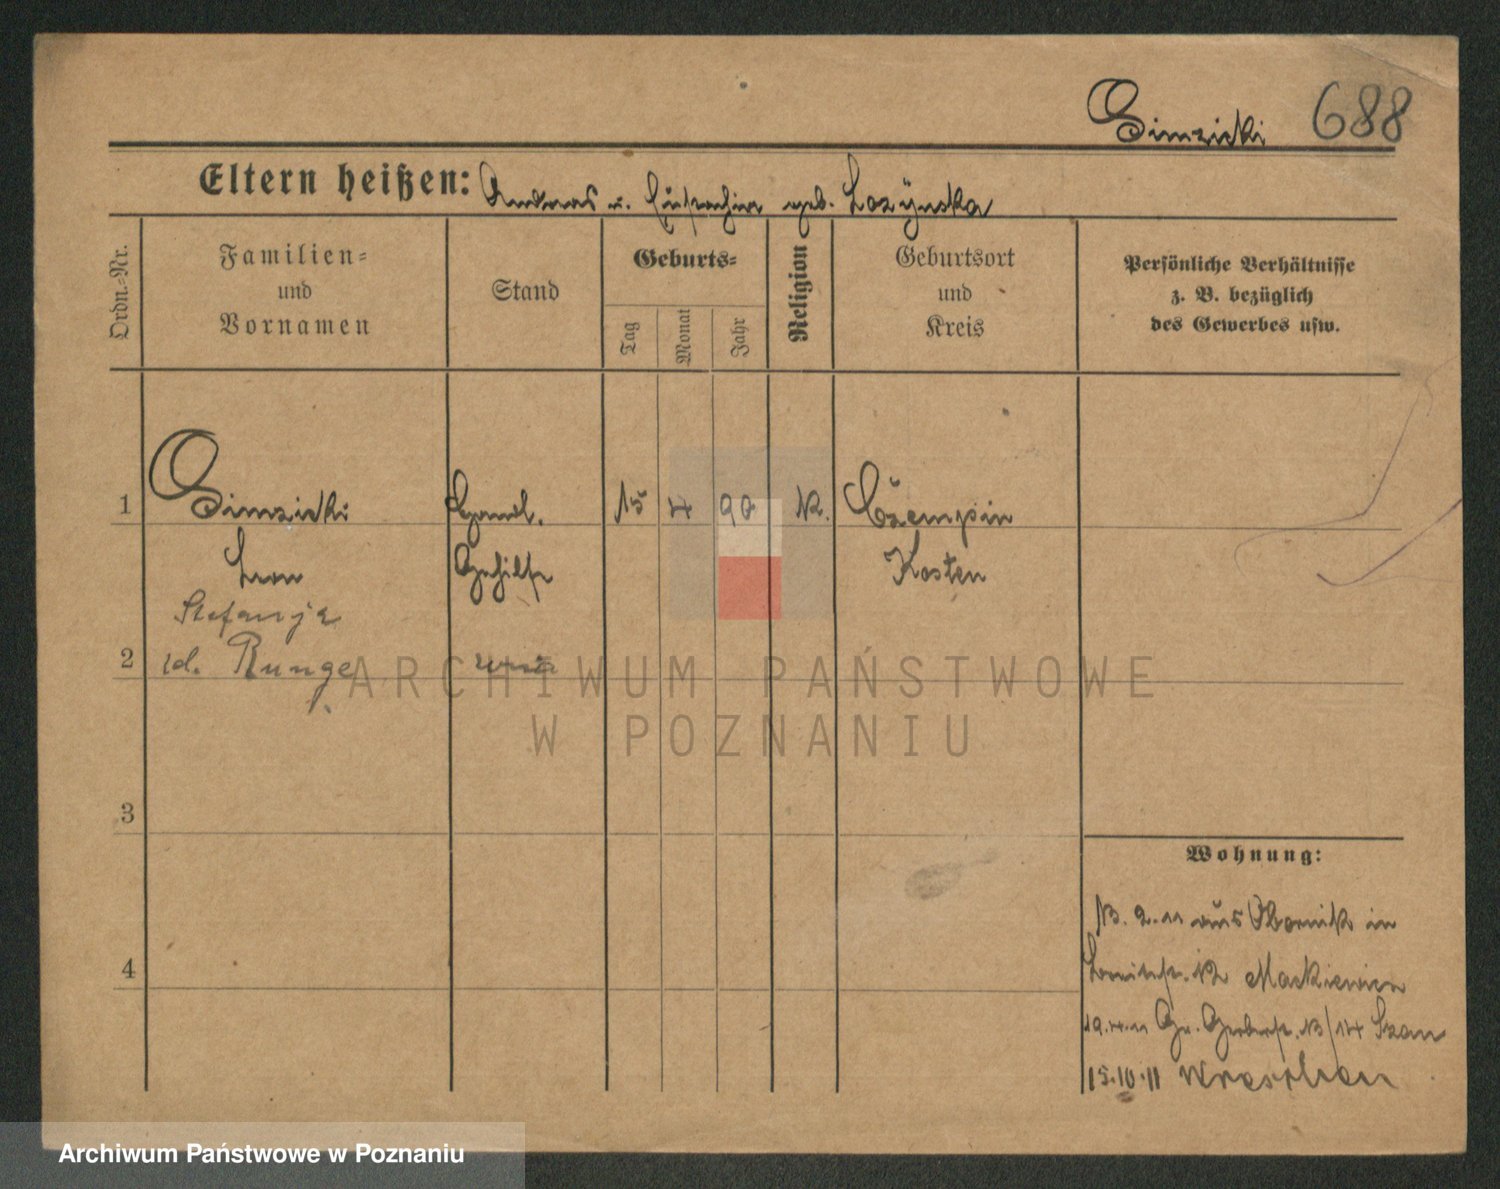 Simzicki 688
Eltern heißen: Andreas u. Eustachia geb. Lozynska
Ordn.-Nr.
Familien-
und
Vornamen
Stand
Geburts-
Tag
Monat
Jahr
Religion
Geburtsort
und
Kreis
Persönliche Verhältnisse
z. B. bezüglich
des Gewerbes usw.
1 Simzicki Handl. 15 4 90 K. Czempin
Leon Gehilfe Kosten
Stefanja
2 id. Runge
ARCHIWUM PAŃSTWOWE
W POZNANIU
3
4
Wohnung:
13. 2. 11 aus Obornik in
12 Mackiewicz
19. 4. 11 Gr. Gerberstr. 13/14
15.10.11 Wreschen
Archiwum Państwowe w Poznaniu